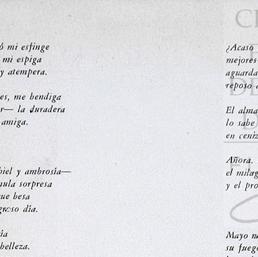 ó mi esfinge
mi espiga
y atempera.
es, me bendiga
r— la duradera
amiga.
hiel y ambrosía—
nula sorpresa
que besa
groso día.
ía
belleza.
¿Acaso
mejores
aguarda
reposo
El alma
lo sabe
en ceniz
Añora.
el milag
y el pro
Mayo n
su fueg